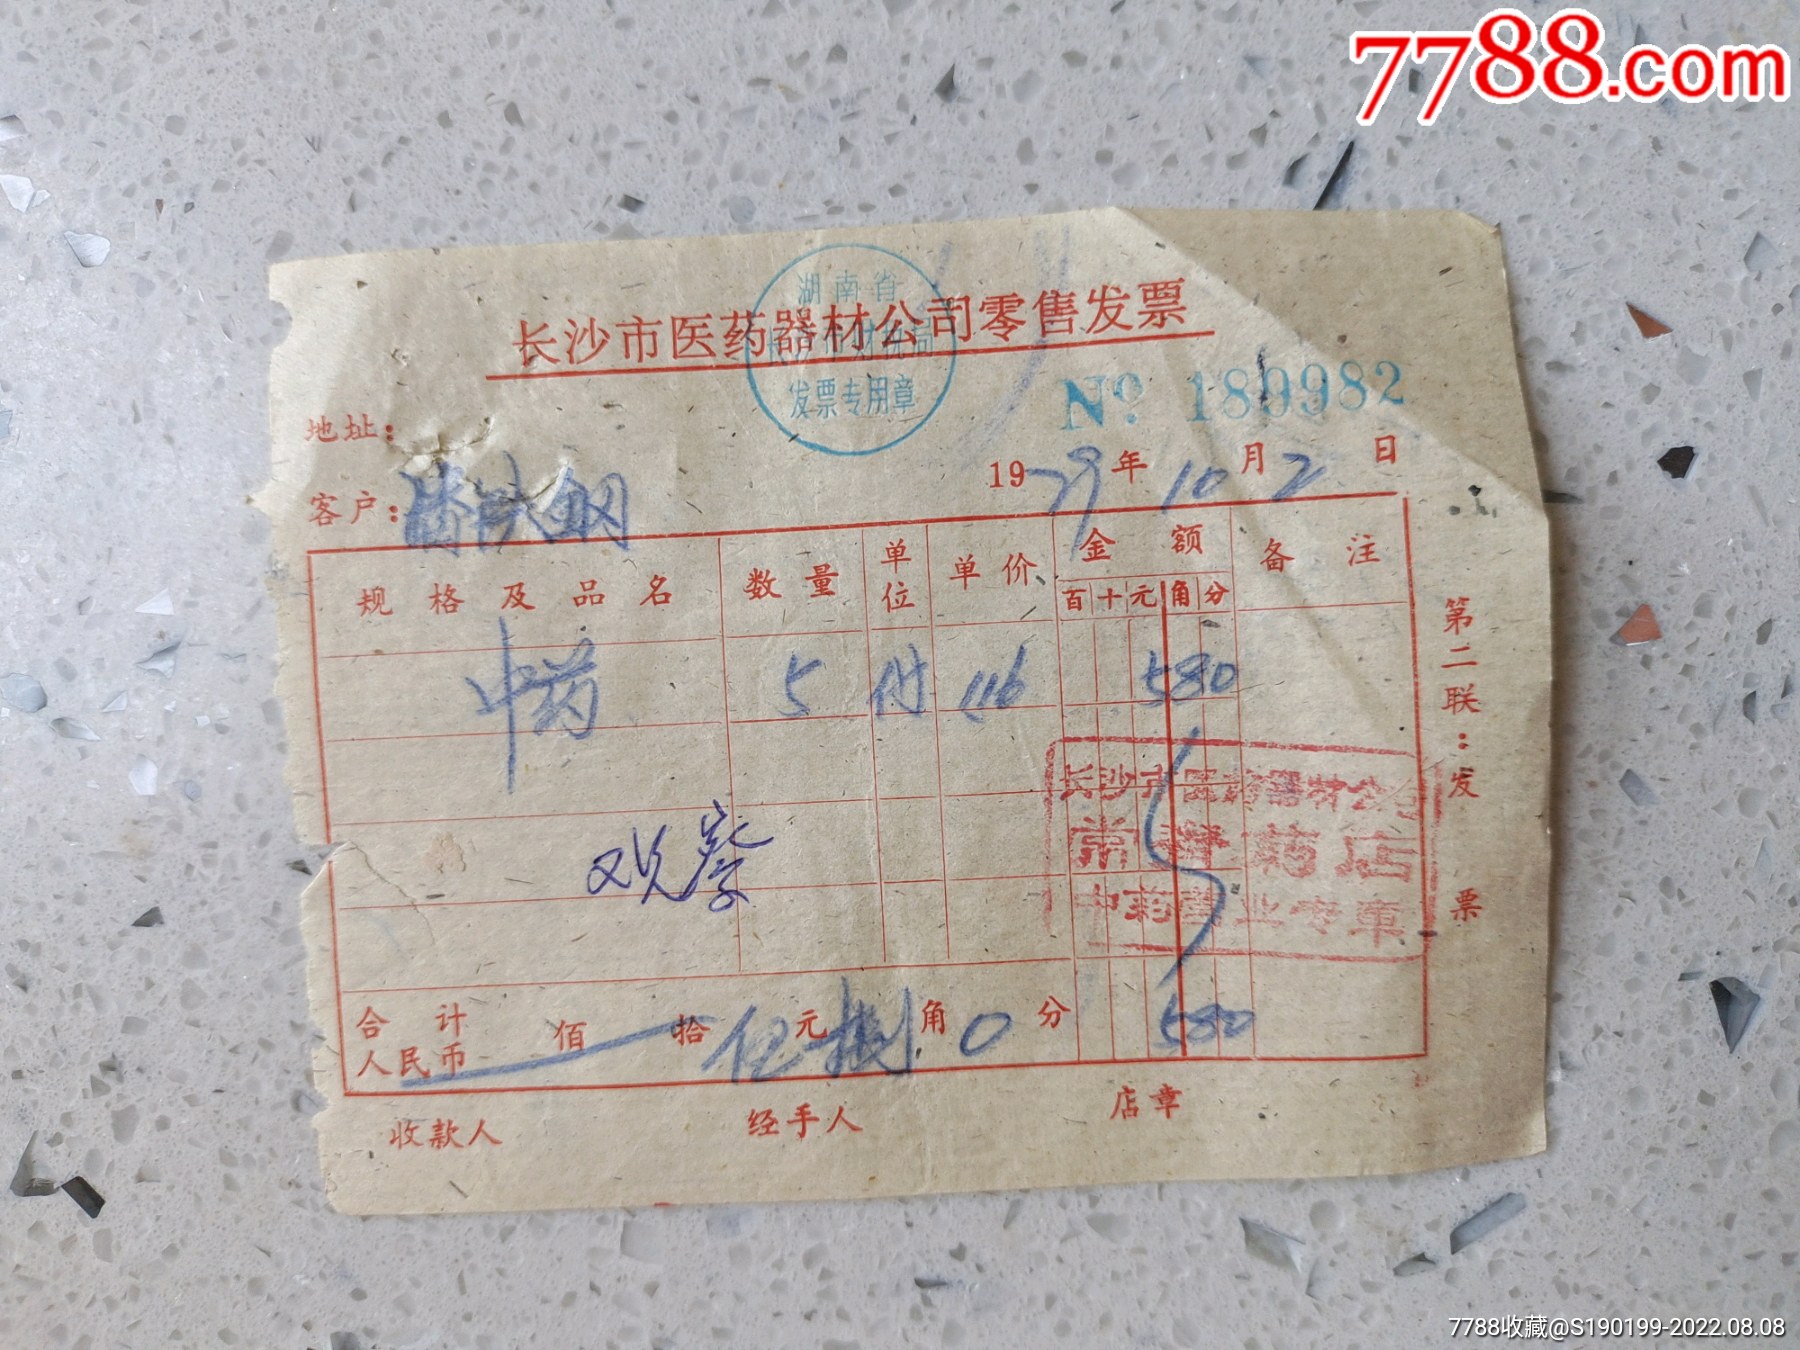 7788.com
湖南省
长沙市医药器材公司零售发票
发票专用章
№ 189982
地址:
1979年10月2日
客户:
规格及品名 数量 单位 单价 金额 备注
百 十 元 角 分
中药 5 付 1.16 580
观察
长沙市医药器材公司
药店
中药营业专章
合计 人民币 佰 拾 伍元捌角0分 580
收款人 经手人 店章
第二联:发票
7788收藏@S190199-2022.08.08